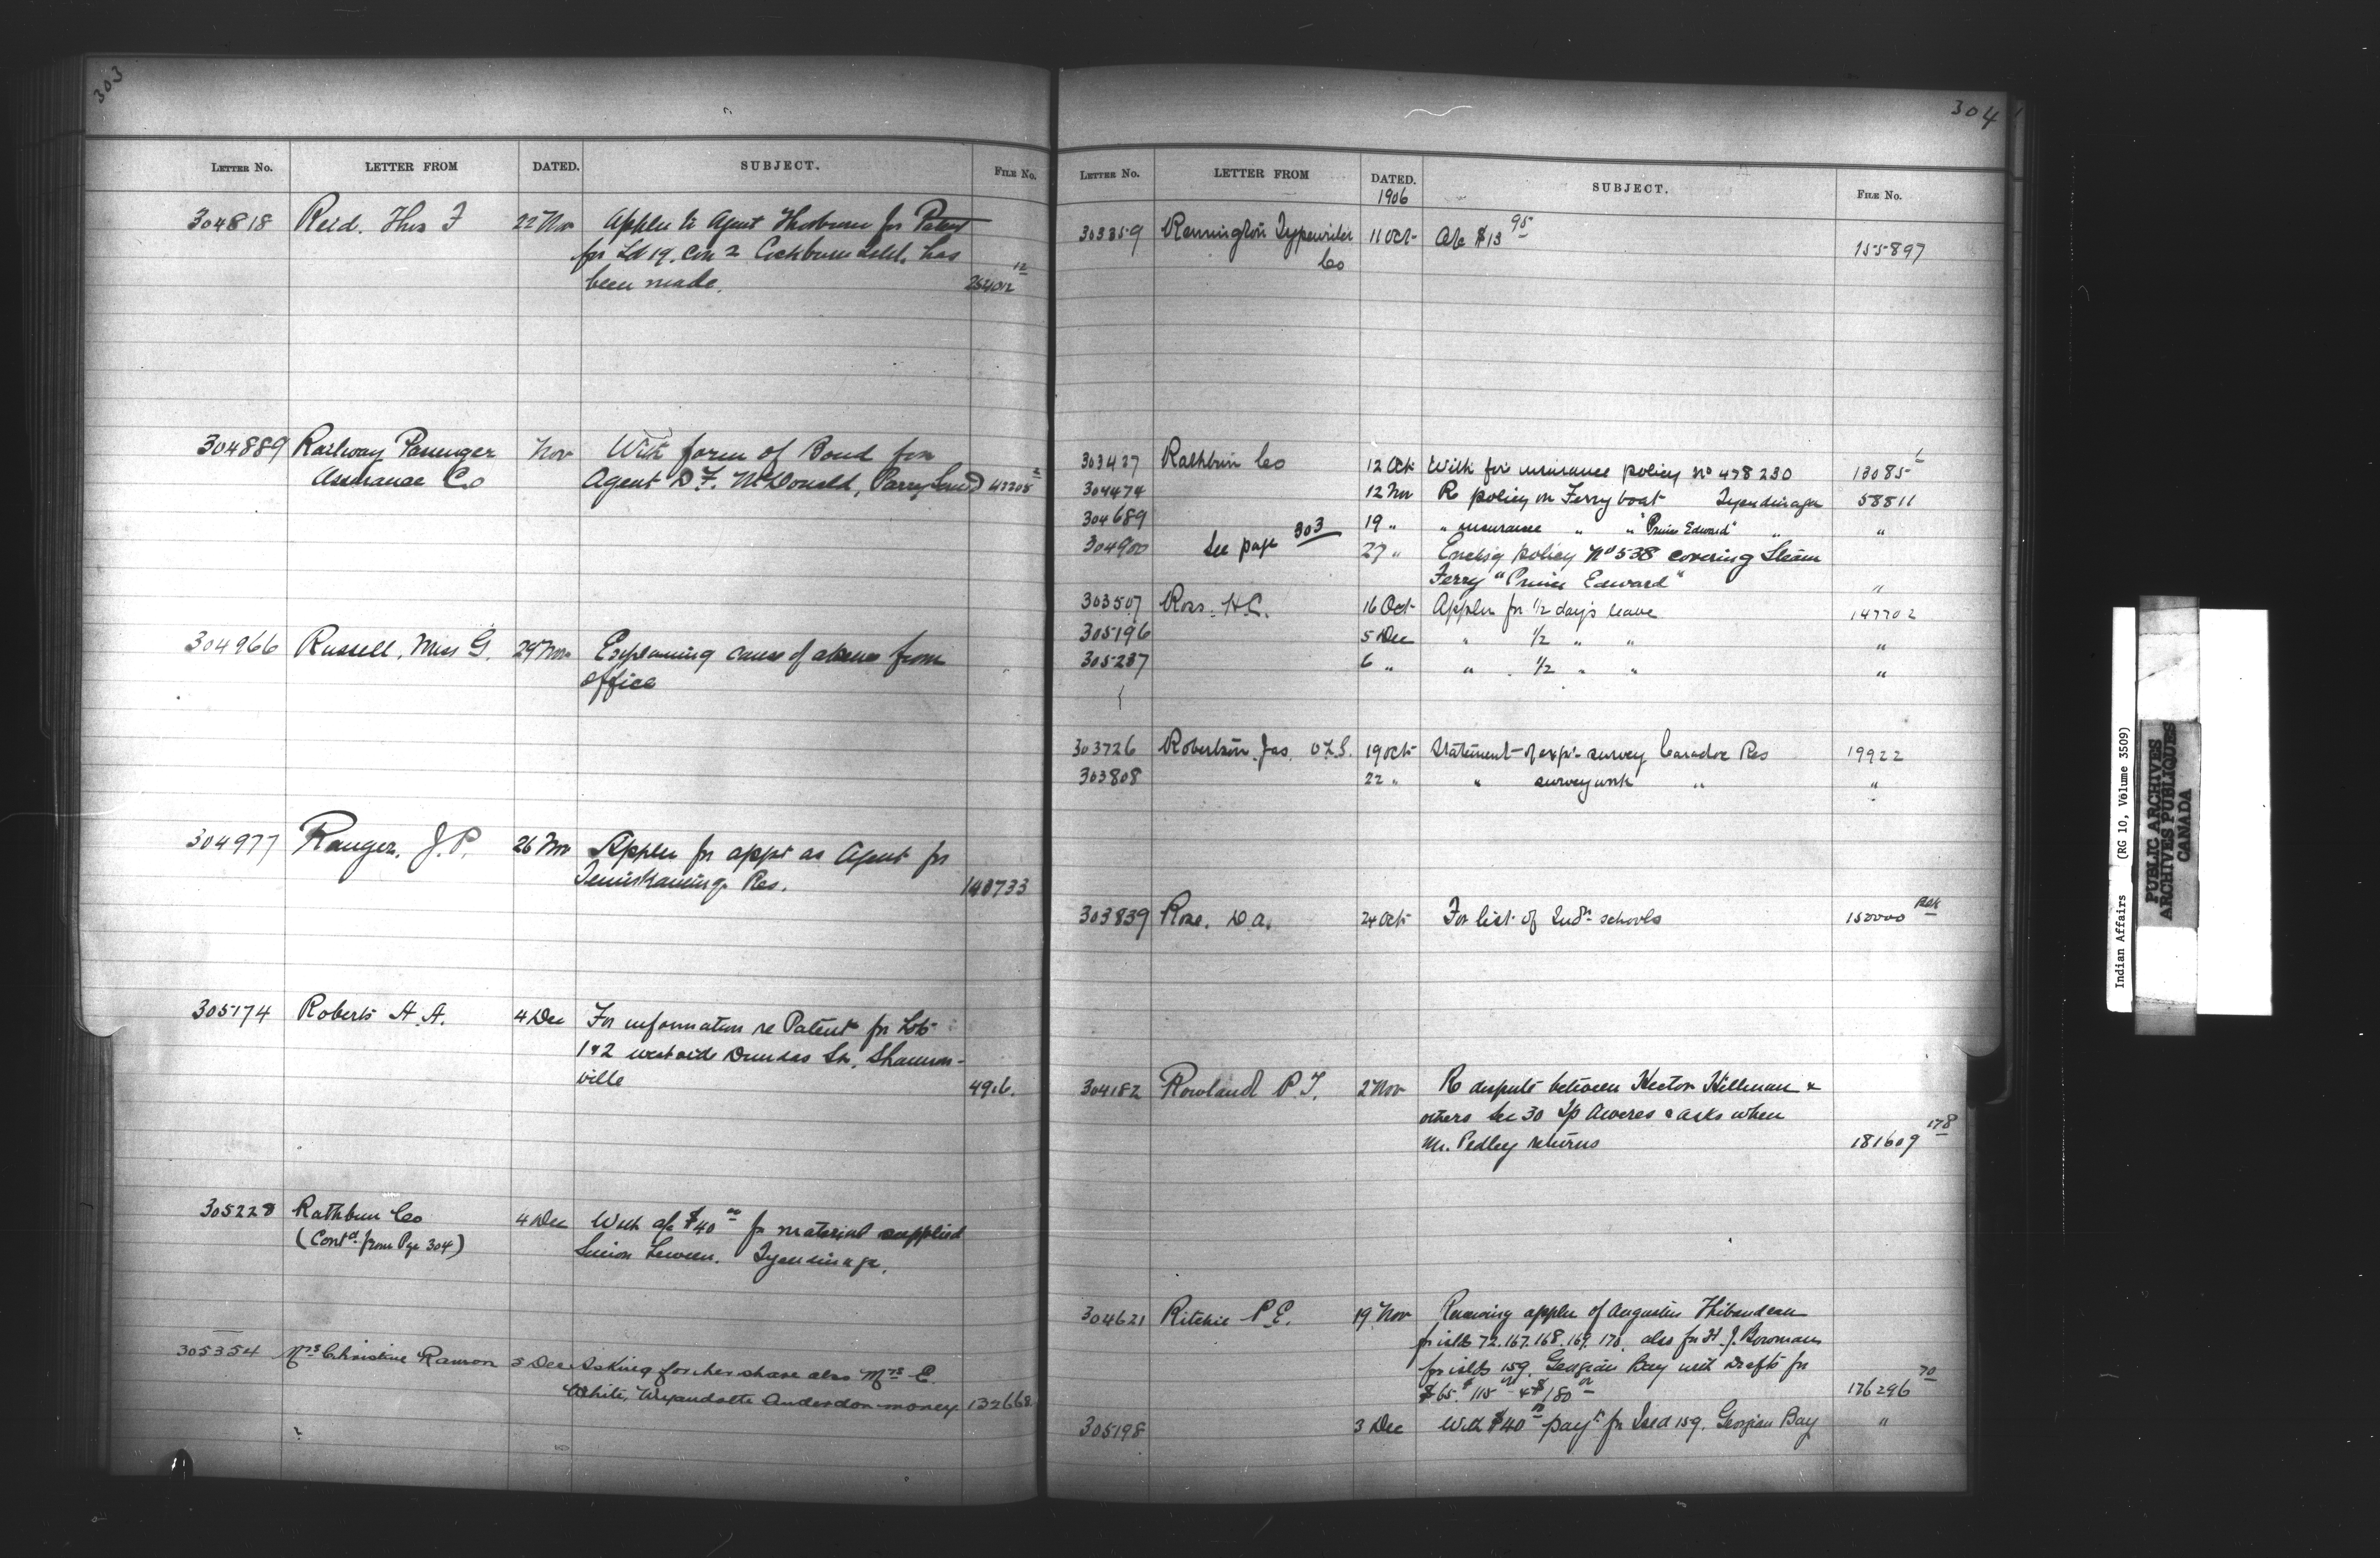 303
LETTER NO. LETTER FROM DATED. SUBJECT. FILE NO.
304818 Reid. Thos F 22 Nov Appln to Agent Thorburn for Patent
for Lot 19. Con 2 Cockburn Isld. has
been made. 254012 12
304889 Railway Passenger Nov With form of Bond for
Assurance Co Agent D. F. McDonald, Parry Sound 47208 2
304966 Russell, Miss G. 29 Nov Explaining cause of absence from
office
304977 Ranger, J. P. 26 Nov Appln for appt as Agent for
Temiskaming Res. 148733
305174 Roberts A. A. 4 Dec For information re Patent for Lots
1 & 2 west side Dundas St. Shannon-
ville 4916.
305228 Rathbun Co 4 Dec With a/c $40 00 for material supplied
(Contd from Pge 304) Tyendinaga.
305354 Mrs Christine Ranson 5 Dec Asking for her share also Mrs E.
White, Wyandotte Anderdon money 132668
304
LETTER NO. LETTER FROM DATED. SUBJECT. FILE NO.
1906
303359 Remington Typewriter 11 Oct A/c $13 95 155897
Co
303427 Rathbun Co 12 Oct With fire insurance policy No 478230 13085
304474 12 Nov Re policy on Ferry boat Tyendinaga 58811
304689 19 " " insurance " " "Prince Edward" " "
304900 See page 303 27 " Enclsg policy No 538 covering Steam
Ferry "Prince Edward" "
303507 Ross. H.C. 16 Oct Appln for 1/2 day's leave 147702
305196 5 Dec " 1/2 " " "
305287 6 " " 1/2 " " "
303726 Robertson Jas. O.L.S. 19 Oct Statement of exps. survey Caradoc Res 19922
303808 22 " " survey work " "
303839 Rose. D.A. 24 Oct For list of Indn schools 150000
304182 Rowland P. T. 2 Nov Re dispute between Hector Hillman &
others Sec 30 Tp Aweres & asks when
Mr. Pedley returns 181609 178
304621 Ritchie P.E. 19 Nov Renewing appln of Augustin Thibaudeau
for islds 72. 167. 168. 169. 170. also for H. J. Bowman
for islds 159. Georgian Bay with drafts for
$65. $115 & $180 00 176296 70
305198 3 Dec With $40 00 payt for Isld 159. Georgian Bay "
Indian Affairs (RG 10, Volume 3509)
PUBLIC ARCHIVES
ARCHIVES PUBLIQUES
CANADA